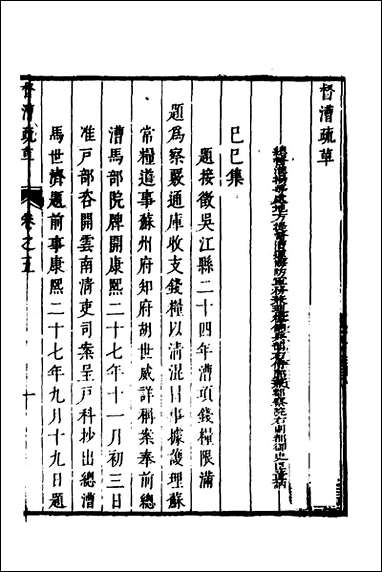 督漕疏草
兵部右侍郎
都察院右副都御史臣董訥
己巳集
題接徵吳江縣二十四年漕項錢糧限滿
題爲察覈通庫收支錢糧以清混冒事據護理蘇
常糧道事蘇州府知府胡世威詳稱案奉前總
漕馬部院牌開康熙二十七年十一月初三日
准戶部咨開雲南清吏司案呈戶科抄出總漕
馬世濟題前事康熙二十七年九月十九日題
督漕疏草
卷之五